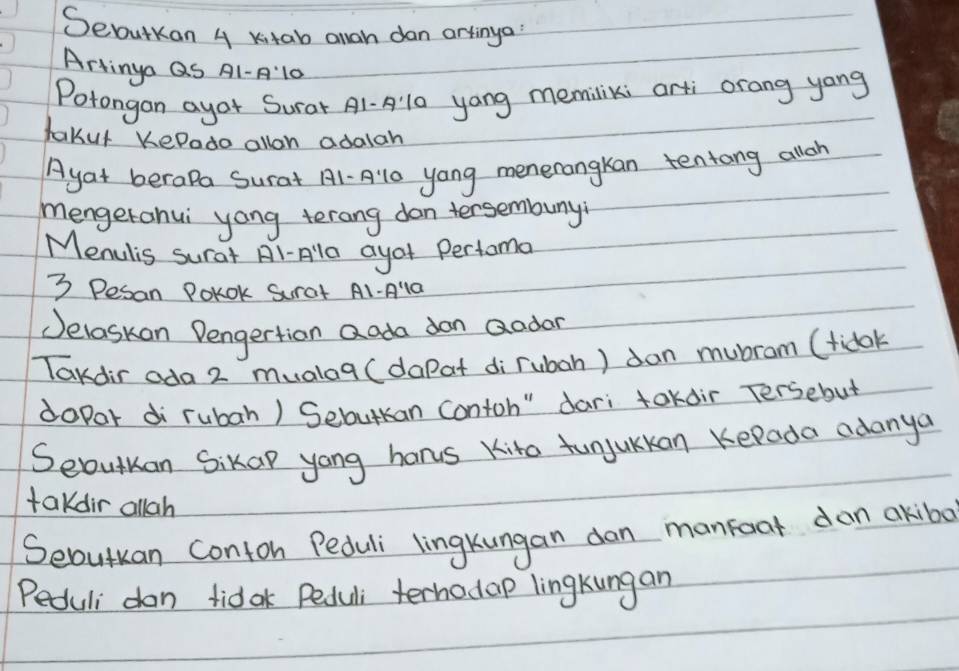 Sebutkan 4 kitab allah dan artinya:
Artinya QS Al-A'la
Potongan ayat Surat Al-A'la yang memiliki arti orang yang
takut kepada allah adalah
Ayat berapa Surat Al-A'la yang menerangkan tentang allah
mengetahui yang terang dan tersembunyi
Menulis surat Al-A'la ayat pertama
3 Pesan Pokok Surat Al-A'la
Jelaskan Pengertian Qada dan Qadar
Takdir ada 2 mualaq (dapat di rubah) dan mubram (tidak
dapat di rubah) Sebutkan contoh" dari takdir Tersebut
Sebutkan Sikap yang harus kita tunjukkan kepada adanya
takdir allah
Sebutkan contoh Peduli lingkungan dan manfaat dan akibat
Peduli dan tidak Peduli terhadap lingkungan